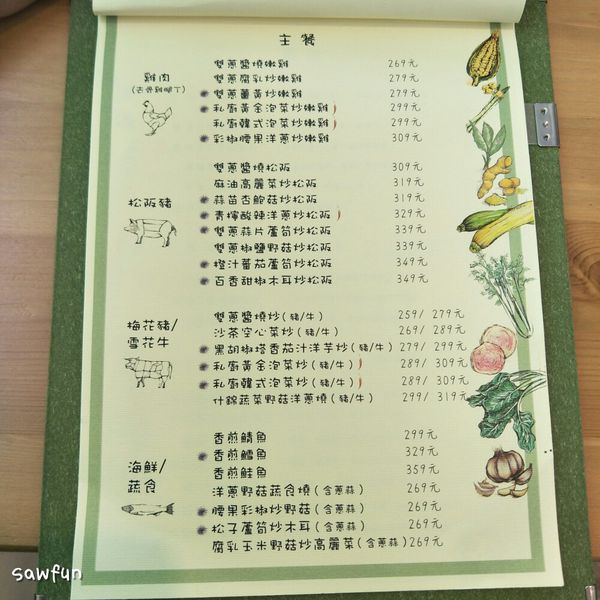 主餐
雞肉
(去骨雞腿丁)
雙蔥醬燒嫩雞 269元
雙蔥腐乳炒嫩雞 279元
雙蔥薑黃炒嫩雞 279元
私廚黃金泡菜炒嫩雞 299元
私廚韓式泡菜炒嫩雞 299元
彩椒腰果洋蔥炒嫩雞 309元
松阪豬
雙蔥醬燒松阪 309元
麻油高麗菜炒松阪 319元
蒜苗杏鮑菇炒松阪 319元
青檸酸辣洋蔥炒松阪 329元
雙蔥蒜片蘆筍炒松阪 339元
雙蔥椒鹽野菇炒松阪 339元
橙汁蕃茄蘆筍炒松阪 349元
百香甜椒木耳炒松阪 349元
梅花豬/
雪花牛
雙蔥醬燒炒(豬/牛) 259/ 279元
沙茶空心菜炒(豬/牛) 269/ 289元
黑胡椒塔香茄汁洋芋炒(豬/牛) 279/ 299元
私廚黃金泡菜炒(豬/牛) 289/ 309元
私廚韓式泡菜炒(豬/牛) 289/ 309元
什錦蔬菜野菇洋蔥燒(豬/牛) 299/ 319元
海鮮/
蔬食
香煎鯖魚 299元
香煎鱈魚 329元
香煎鮭魚 359元
洋蔥野菇蔬食燒(含蔥蒜) 269元
腰果彩椒炒野菇(含蔥蒜) 269元
松子蘆筍炒木耳(含蔥蒜) 269元
腐乳玉米野菇炒高麗菜(含蔥蒜)269元
sawfun